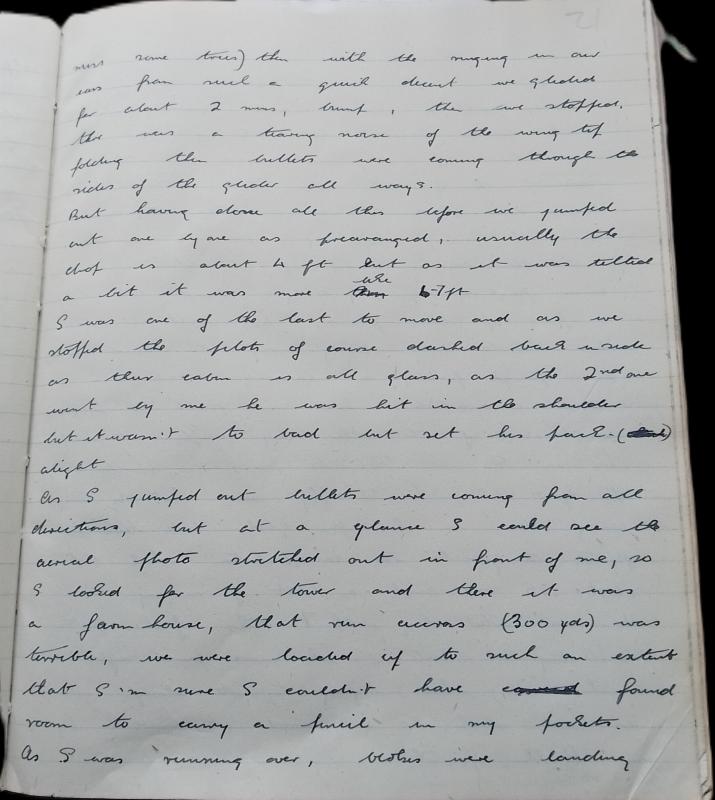 21
miss some trees) then with the ringing in our
ears from such a quick decent we glided
for about 2 mins, bump, then we stopped.
there was a tearing noise of the wing tip
folding then bullets were coming through the
sides of the glider all ways.
But having done all this before we jumped
out one by one as prearranged, usually the
drop is about 4 ft but as it was tilted
a bit it was more like 6-7ft
I was one of the last to move and as we
stopped the pilots of course dashed back inside
as their cabin is all glass, as the 2nd one
went by me he was hit in the shoulder
but it wasn't to bad but set his pack.
alight
As I jumped out bullets were coming from all
directions, but at a glance I could see the
aerial photo stretched out in front of me, so
I looked for the tower and there it was
a farm house, that run accros (300 yds) was
terrible, we were loaded up to such an extent
that I'm sure I couldn't have found
room to carry a pencil in my pockets.
As I was running over, blokes were landing